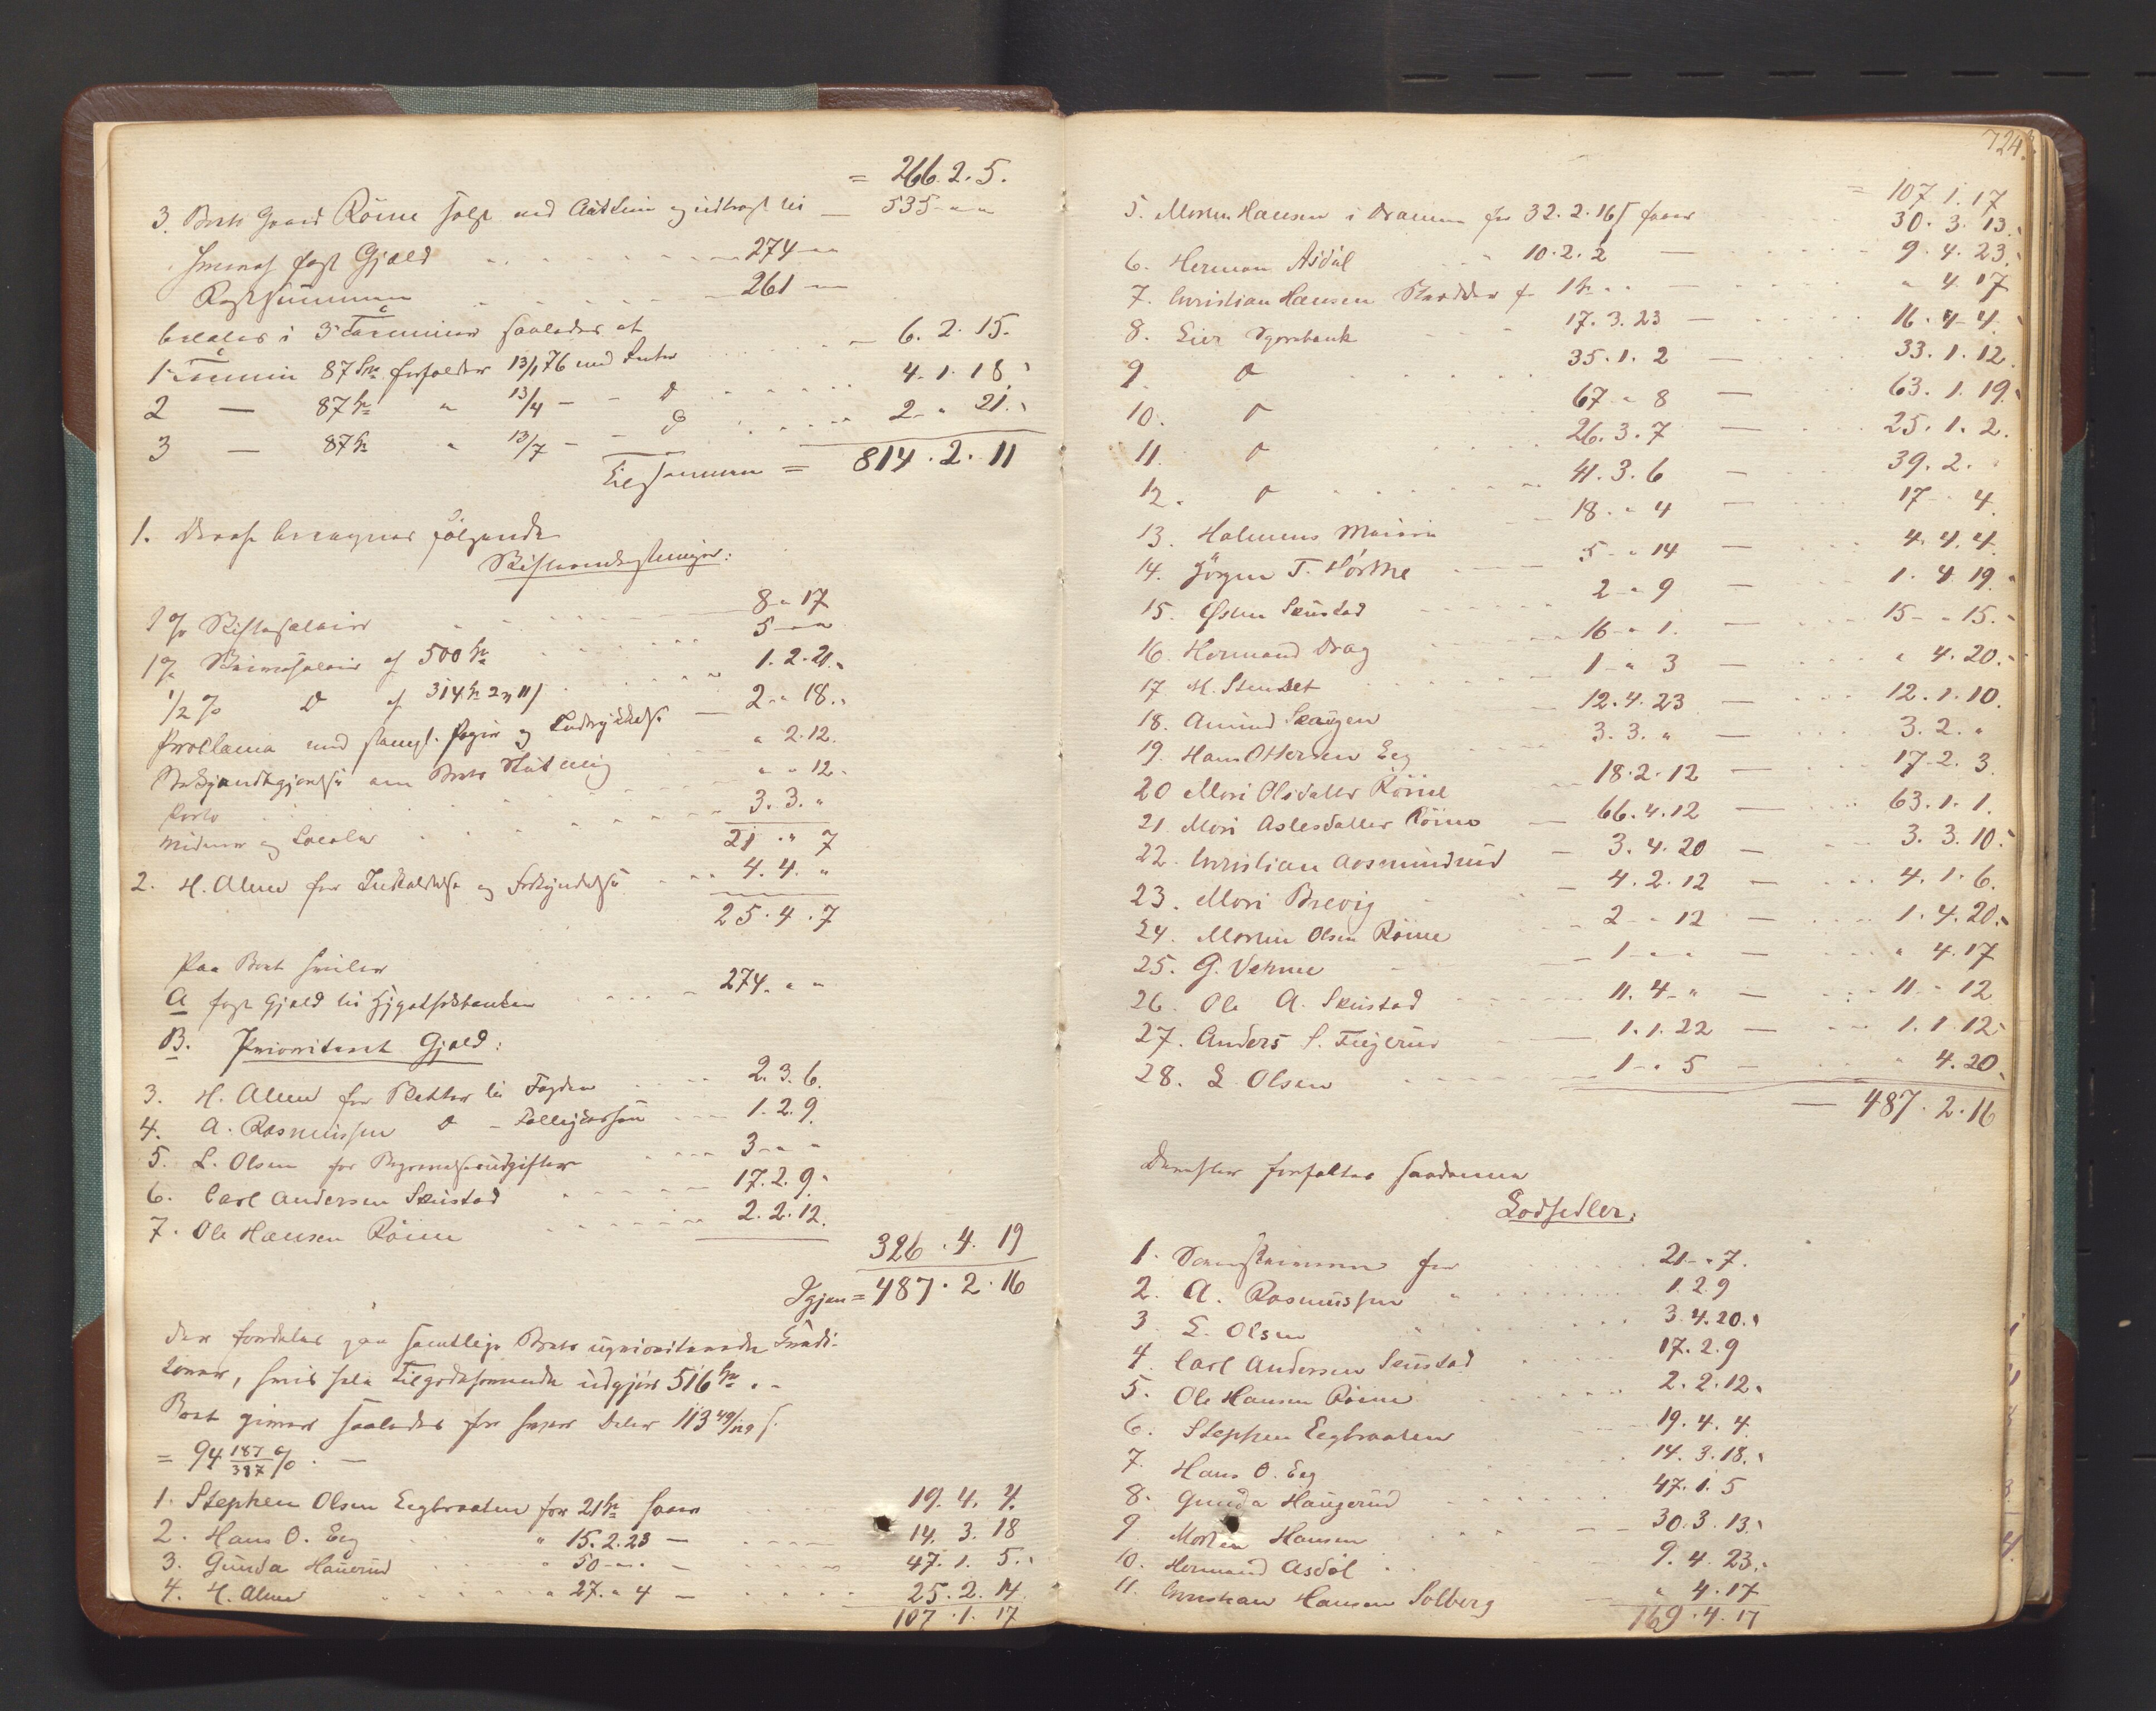 = 266. 2. 5.
3. Boets Gaard Röine solgt ved Auction og udbragt til — 535 - " "
hvoraf fast Gjæld 274 - " "
Restsummen 261 - "
betales i 3 Terminer saaledes at
1 Termin 87 Spd forfalder 13/1 76 med Renter 6. 2. 15.
2 — 87 Spd " 13/4 — D 4. 1. 18.
3 — 87 Spd " 13/7 — D 2 - " 21.
Tilsammen = 814. 2. 11
1. Deraf beregnes følgende
Skifteomkostninger:
1 % Skiftesalair 8 " 17
1 % Skriversalair af 500 Spd 5 - " "
1/2 % D af 314 Spd 2 11 1. 2. 21.
Proclama med stempl. Papir og Indrykkelse 2 - " 18.
Bekjendtgjørelse om Boets Slutning " 2. 12.
Porto " " 12.
Widner og Locale 3. 3. "
21 " 7
2. H. Alme for Indkaldelse og Forkyndelse 4. 4. "
25. 4. 7
Paa Boet hviler
A fast Gjæld til Hypothekbanken 274. " "
B. Prioriteret Gjæld:
3. H. Alme for Skatter til Fogden 2. 3. 6.
4. A. Rasmussen D - 1. 2. 9.
5. L. Olsen for Begravelsesudgifter 3 - " "
6. Carl Andersen Skustad 17. 2. 9.
7. Ole Hansen Röine 2. 2. 12.
326. 4. 19
Igjen = 487. 2. 16
der fordeles paa samtlige Boets uprioriterede Credi-
torer, hvis hele Tilgodehavende udgjør 516 Spd " -
Boet giver saaledes for hver Daler 113 49/129 s.
= 94 187/387 % . —
1. Stephen Olsen Eegbraaten for 21 Spd faaer 19. 4. 4.
2. Hans O. Eeg " 15. 2. 23 — 14. 3. 18
3. Gunda Hauerud " 50 - " - — 47. 1. 5.
4. H. Alme " 27. " 4 — 25. 2. 14
107. 1. 17
724.
= 107. 1. 17
5. Morten Hansen i Drammen for 32. 2. 16 s faaer 30. 3. 13.
6. Herman Asdöl " 10. 2. 2 — 9. 4. 23.
7. Christian Hansen Skrædder f 1 Spd " " — " 4. 17
8. Eier Sparebank 17. 3. 23 — 16. 4. 4.
9. D 35. 1. 2 — 33. 1. 12
10. D 67 " 8 — 63. 1. 19.
11. D 26. 3. 7 — 25. 1. 2.
12. D 41. 3. 6 — 39. 2. "
13. Halmens 18. " 4 — 17 " 4.
14. Jörgen T. Hörthe 5 - " 14 — 4. 4. 4.
15. Östen Skustad 2 - " 9 — 1. 4. 19.
16. Hermand Drag 16 - " 1. — 15 - " 15.
17 M. Stensæt 1 - " 3 — " 4. 20.
18. Amund Skaugen 12. 4. 23 — 12. 1. 10.
19. Hans Ottersen Eeg 3. 3. " — 3. 2. "
20 Mari Olsdatter Röine 18. 2. 12 — 17. 2. 3.
21. Mari Aslesdatter Röine 66. 4. 12 — 63. 1. 1.
22. Christian Aasmundrud 3. 4. 20 — 3. 3. 10.
23. Mari Brevig 4. 2. 12 — 4. 1. 6.
24. Martin Olsen Röine 2 - " 12 — 1. 4. 20.
25. G. Vehme 1 - " " — " 4. 17
26. Ole A. Skustad 11. 4 - " — 11 - " 12
27. Anders S. Fugerud 1. 1. 22 — 1. 1. 12.
28. L. Olsen 1 - " 5 — " 4. 20.
487. 2. 16
Derefter forfattes saadanne
Lodsedler:
1. Sorenskriveren for 21 - " 7.
2. A. Rasmussen " 1. 2. 9
3 L. Olsen 3. 4. 20.
4. Carl Andersen Skustad 17. 2. 9
5. Ole Hansen Röine 2. 2. 12.
6. Stephen Eegbraaten 19. 4. 4.
7. Hans O. Eeg 14. 3. 18.
8. Gunda Haugerud 47. 1. 5
9 Morten Hansen 30. 3. 13.
10. Hermand Asdöl 9. 4. 23.
11. Christian Hansen Solberg " 4. 17
169. 4. 17